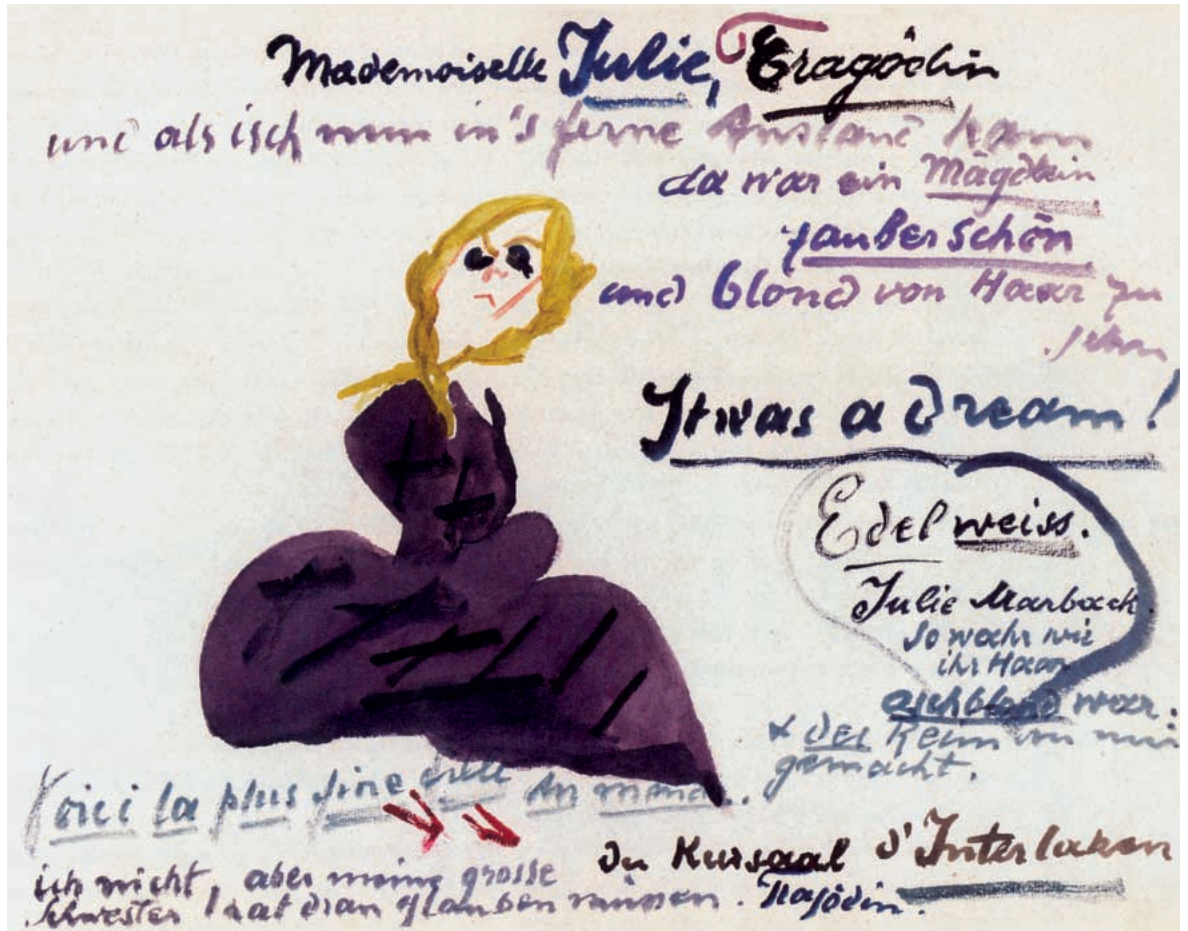 Mademoiselle Julie, Tragödin
und als isch nun in's ferne Ausland kam
da war ein Mägdlein
zauberschön
und blond von Haar zu
sehn
It was a Dream!
Edelweiss.
Julie Marback
so wahr wie
ihr Haar
aschblond war.
& der Reim von mir
gemacht.
Voici la plus fine du monde.
ich nicht, aber meine grosse
Schwester hat dran glauben müssen.
du Kursaal d'Interlaken
Trajödin.